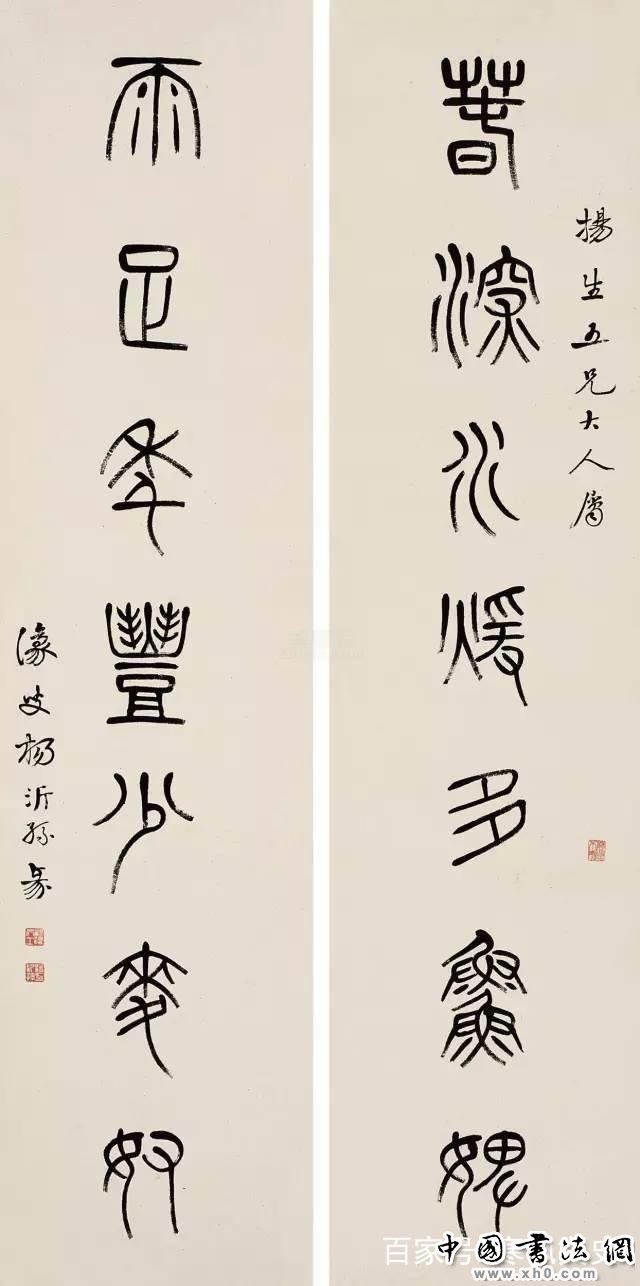 揚生五兄大人屬
春深水暖多魚婢
雨足年豐少麥奴
濠叟楊沂孫篆
百家号
中國書法網
www.xh0.com